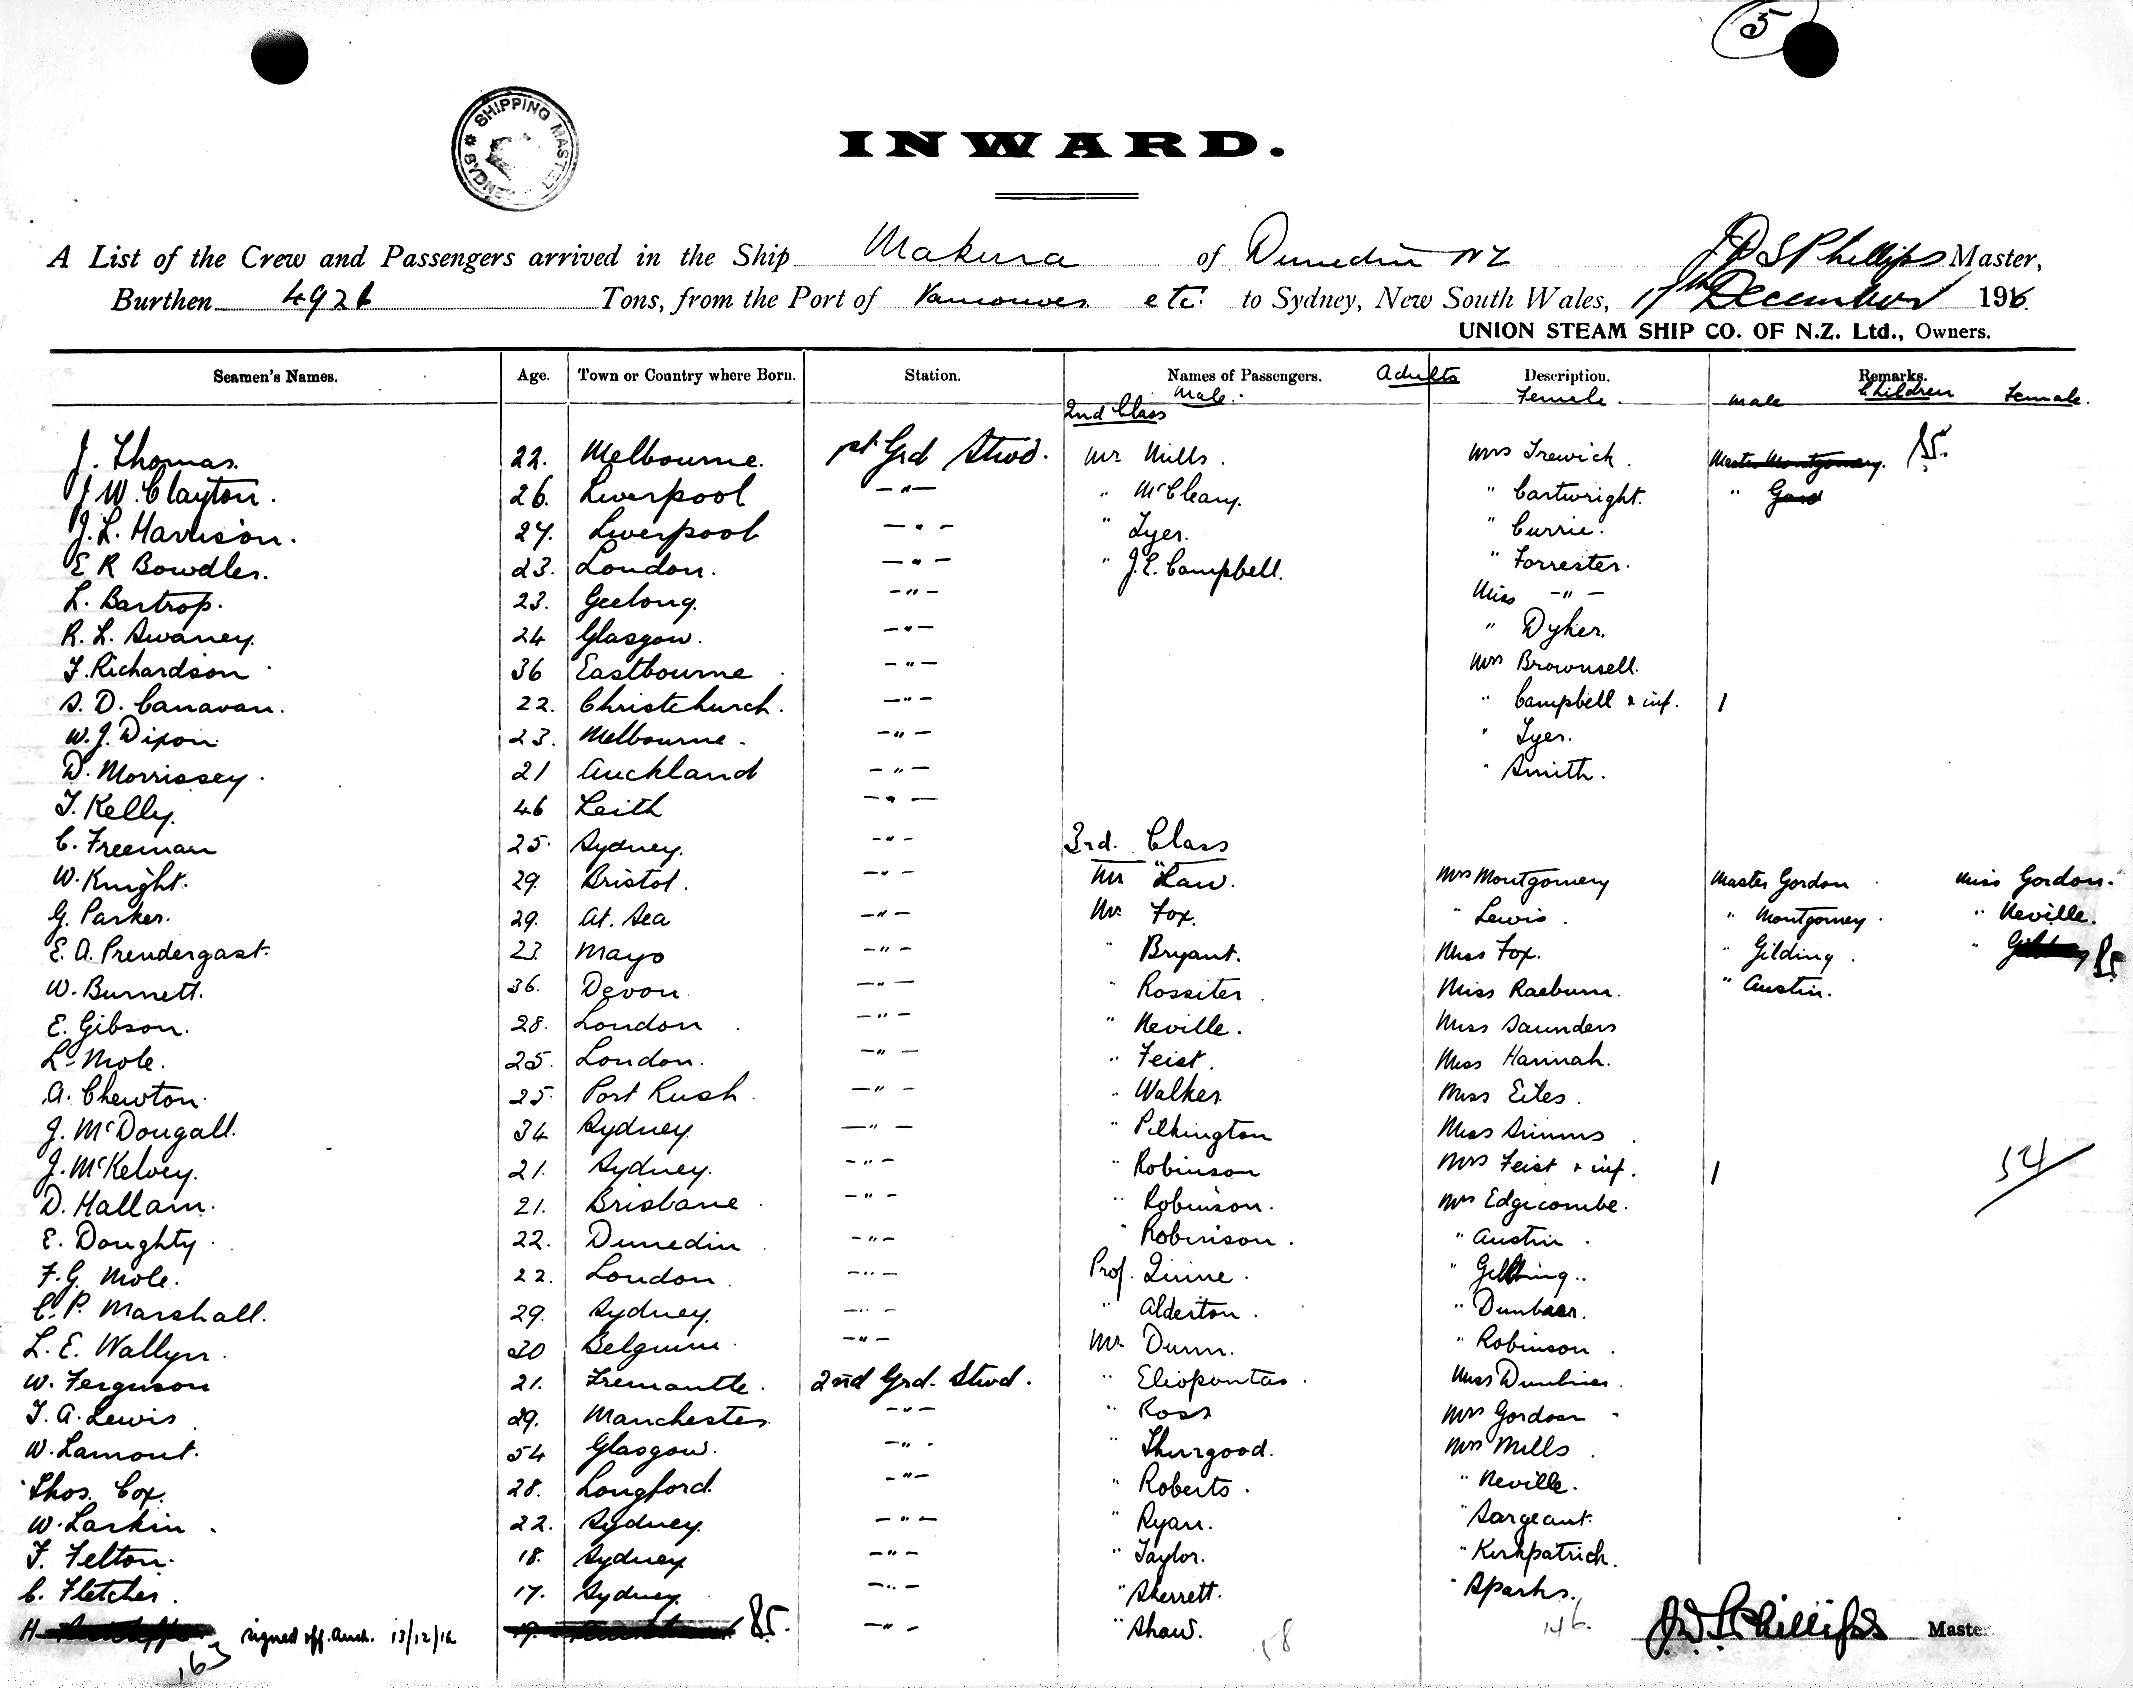 5
SHIPPING MASTER SYDNEY
INWARD.
A List of the Crew and Passengers arrived in the Ship Makura of Dunedin NZ J D S Phillips Master,
Burthen 4921 Tons, from the Port of Vancouver etc. to Sydney, New South Wales, 17th December 1916.
UNION STEAM SHIP CO. OF N.Z. Ltd., Owners.
Seamen's Names. Age. Town or Country where Born. Station. Names of Passengers. Adults Description. Remarks.
Male. Female. Male Children Female.
2nd Class
J. Thomas. 22. Melbourne. 1st Grd Stwd. Mr Mills. Mrs Trewick. Master Montgomery.
J. W. Clayton. 26. Liverpool —"— " McCleary. " Cartwright. "
J. L. Harrison. 27. Liverpool —"— " Tyer. " Currie.
E R Bowdler. 23. London. —"— " J. E. Campbell. " Forrester.
L. Bartrop. 23. Geelong. —"— Miss —"—
R. L. Swaney. 24 Glasgow. —"— " Dyker.
F. Richardson 36 Eastbourne —"— Mrs Brownsell.
S. D. Canavan. 22. Christchurch. —"— " Campbell & inf. 1
W. J. Dixon. 23. Melbourne. —"— " Tyer.
D. Morrissey. 21 Auckland —"— " Smith.
T. Kelly. 46 Leith —"—
C. Freeman 25. Sydney. —"— 3rd. Class
W. Knight. 29. Bristol. —"— Mr Law. Mrs Montgomery Master Gordon Miss Gordon.
G. Parker. 29. At. Sea —"— Mr. Fox. " Lewis. " Montgomery. " Neville.
E. A. Prendergast. 23. Mayo —"— " Bryant. Miss Fox. " Gilding.
W. Burnett. 36. Devon. —"— " Rossiter. Miss Raeburn. " Austin.
E. Gibson. 28. London —"— " Neville. Miss Saunders
L. Mole. 25. London. —"— " Feist. Miss Hannah.
A. Chewton. 25. Port Rush —"— " Walker. Miss Eiles.
J. McDougall. 34 Sydney. —"— " Pilkington Miss Simms.
J. McKelvey. 21. Sydney. —"— " Robinson Mrs Feist & inf. 1 54
D. Hallam. 21. Brisbane —"— " Robinson. Mrs Edgecombe.
E. Doughty. 22. Dunedin —"— " Robinson. " Austin.
F. G. Mole. 22. London. —"— Prof. "
C. P. Marshall. 29. Sydney. —"— " Alderton. "
L. E. Wallyn. 30 Belguim. —"— Mr. Dunn. " Robinson.
W. Ferguson 21. Fremantle. 2nd Grd. Stwd. " Eliopontas. Miss
T. A. Lewis 29. Manchester —"— " Ross Mrs Gordon
W. Lamont. 54 Glasgow. —"— " Thurgood. Mrs Mills
Thos. Cox. 28. Longford. —"— " Roberts. " Neville.
W. Larkin. 22. Sydney. —"— " Ryan. " Sargeant.
F. Felton. 18. Sydney —"— " Taylor. " Kirkpatrick.
C. Fletcher. 17. Sydney. —"— " Sherrett. " Sparks.
H signed off. Auck. 13/12/16 —"— " Shaw. J. D. S. Phillips Master
163 58 146